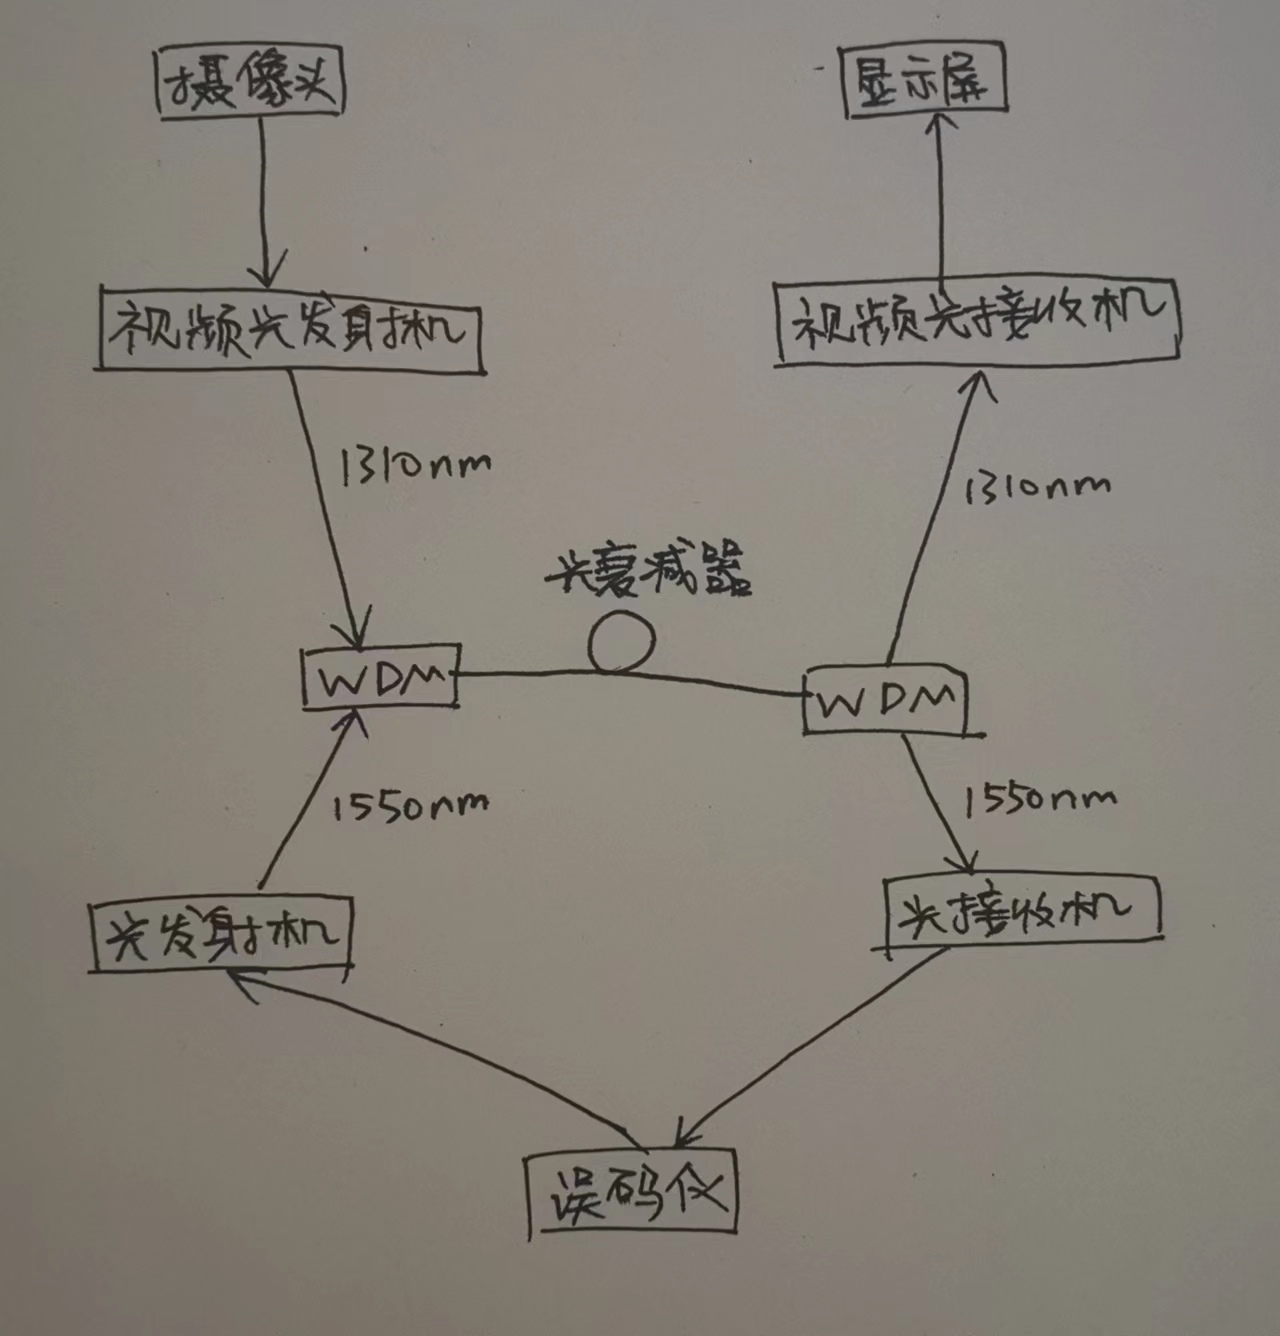 摄像头
显示屏
视频光发射机
视频光接收机
1310nm
1310nm
光衰减器
WDM
WDM
1550nm
1550nm
光发射机
光接收机
误码仪